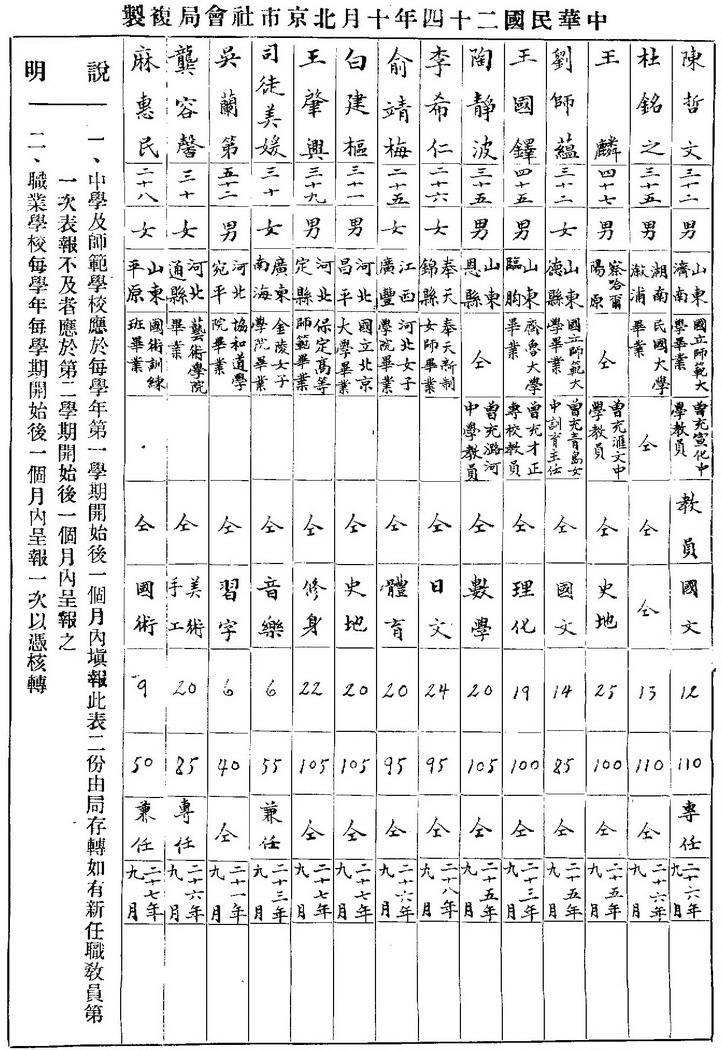 中華民國二十四年十月北京市社會局複製
陳哲文 三十二 男 山東濟南 國立師範大學畢業 曾充宣化中學教員 教員 國文 12 110 專任 二十六年九月
杜銘之 三十五 男 湖南溆浦 民國大學畢業 仝 仝 仝 13 110 仝 二十六年九月
王麟 四十七 男 察哈爾陽原 仝 曾充滙文中學教員 仝 史地 25 100 仝 二十五年九月
劉師蘊 三十二 女 山東德縣 國立師範大學畢業 曾充青島女中訓育主任 仝 國文 14 85 仝 二十五年九月
王國鐸 四十五 男 山東臨朐 齊魯大學畢業 曾充才正專校教員 仝 理化 19 100 仝 二十三年九月
陶靜波 三十五 男 山東恩縣 仝 曾充潞河中學教員 仝 數學 20 105 仝 二十五年九月
李希仁 二十六 女 奉天錦縣 奉天新制女師畢業 仝 日文 24 95 仝 二十八年九月
俞靖梅 二十五 女 江西廣豐 河北女子學院畢業 仝 體育 20 95 仝 二十六年九月
白建樞 三十一 男 河北昌平 國立北京大學畢業 仝 史地 20 105 仝 二十七年九月
王肇興 三十九 男 河北定縣 保定高等師範畢業 仝 修身 22 105 仝 二十七年九月
司徒美媛 三十 女 廣東南海 金陵女子學院畢業 仝 音樂 6 55 兼任 二十三年九月
吳蘭第 五十二 男 河北宛平 協和道學院畢業 仝 習字 6 40 仝 二十一年九月
龔容馨 三十 女 河北通縣 藝術學院畢業 仝 美術手工 20 85 專任 二十六年九月
麻惠民 二十八 女 山東平原 國術訓練班畢業 仝 國術 9 50 兼任 二十七年九月
說明
一、中學及師範學校應於每學年第一學期開始後一個月內塡報此表二份由局存轉如有新任職教員第
一次表報不及者應於第二學期開始後一個月內呈報之
二、職業學校每學年每學期開始後一個月內呈報一次以憑核轉